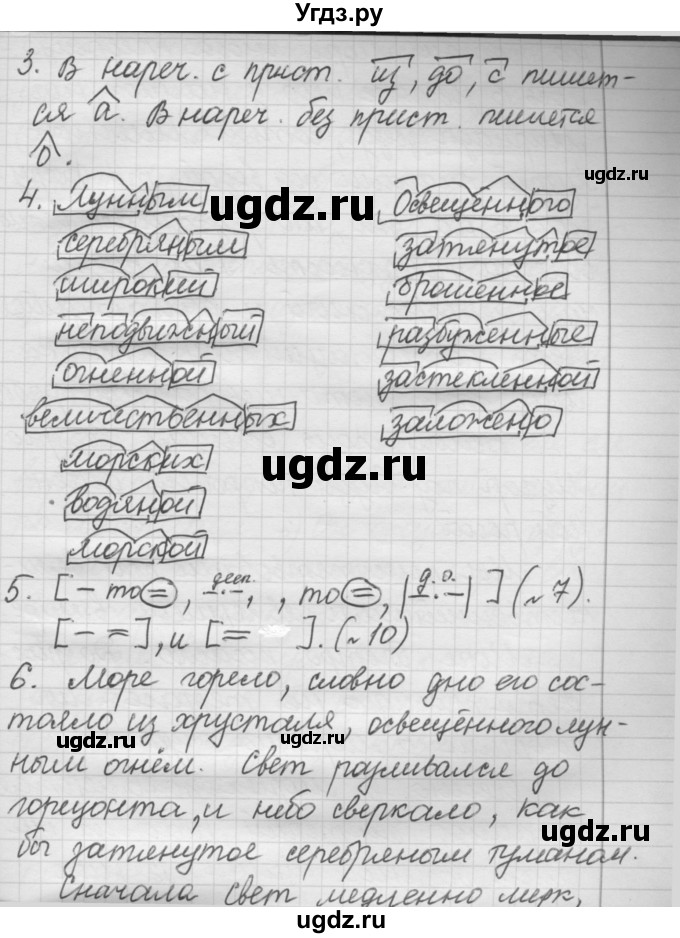 Угдз.ру
3. В нареч. с прист. из, до, с пишет-
ся а. В нареч. без прист. пишется
о.
4. Лунным Освещённого
серебряным затянутое
широкий брошенное
неподвижный разбуженные
огненной застекленной
величественных заложено
морских
водяной
морской
5. [ – то =, дееп. , , то =, | д. о. | ] (~ 7).
[ – = ], и [ = ]. (~ 10)
6. Море горело, словно дно его сос-
тояло из хрусталя, освещённого лун-
ным огнём. Свет разливался до
горизонта, и небо сверкало, как
бы затянутое серебряным туманом.
Сначала свет медленно мерк,
ugdz.ru
ugdz.ru
ugdz.ru
ugdz.ru
ugdz.ru
ugdz.ru
ugdz.ru
ugdz.ru